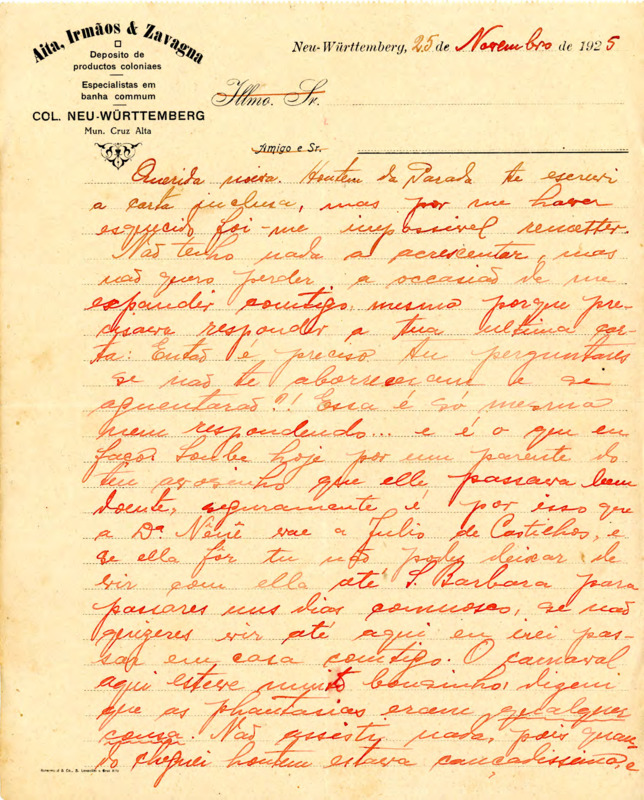 Aita, Irmãos & Zavagna
Deposito de
productos coloniaes
Especialistas em
banha commum
COL. NEU-WÜRTTEMBERG
Mun. Cruz Alta
Neu-Württemberg, 25 de Novembro de 1925
Illmo. Sr.
Amigo e Sr.
Querida noiva. Hontem da Parada te escrevi
a carta inclusa, mas por me haver
esquecido foi-me impossivel remetter.
Não tenho nada a acrescentar, mas
não quero perder a occasião de me
expandir comtigo, mesmo porque pre-
cisava responder a tua ultima car-
ta: Então é preciso tu perguntares
se não te aborreceram e se
aguentarão?! Essa é só mesmo
nem respondendo... e é o que eu
faço. Soube hoje por um parente do
teu avosinho que elle passava bem
doente, seguramente é por isso que
a Dª Nênê vae a Julio de Castilhos, e
se ella fôr tu não podes deixar de
vir com ella até S. Barbara para
passares uns dias comnosco, se não
quizeres vir até aqui eu irei pas-
sar em casa comtigo. O carnaval
aqui esteve muito bonsinho; dizem
que as phantasias eram qualquer
cousa. Não assisti nada, pois quan-
do cheguei hontem estava cançadissimo, e